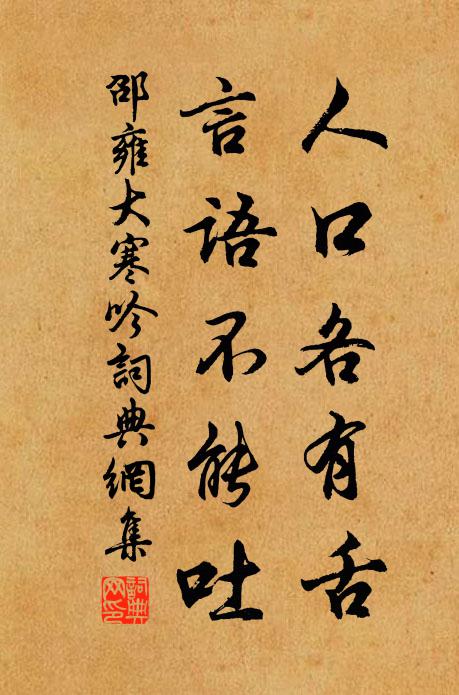 人口各有舌
言語不能吐
邵雍大寒吟詞典網集
詞典网印